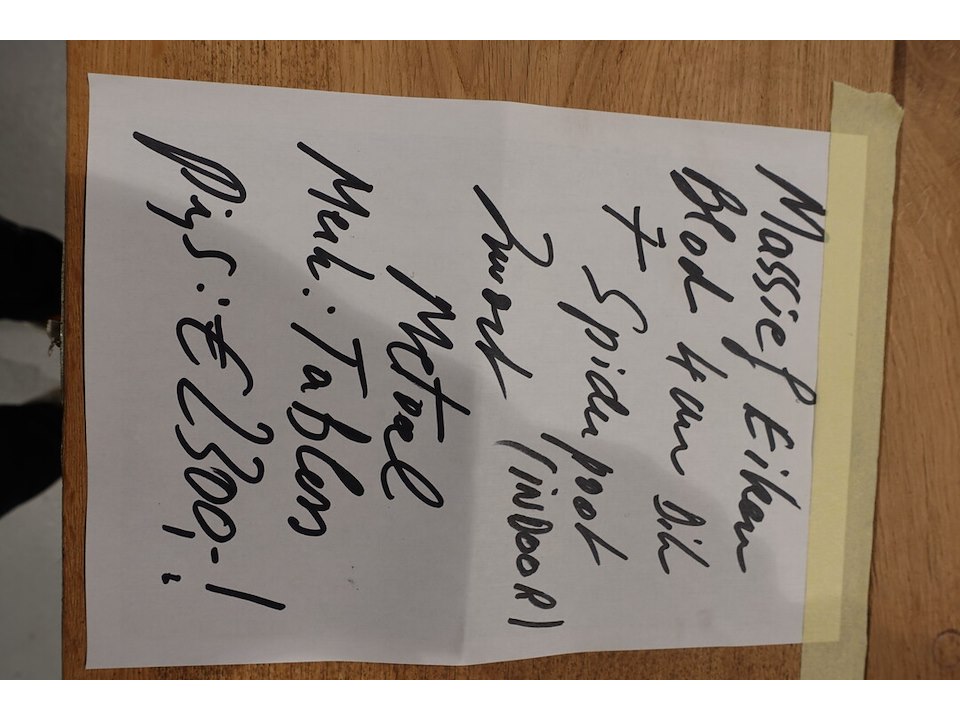 Massief Eiken
Blad 4 cm Dik
+ Spider poot
Zwart (INDOOR)
Metaal
Merk: Tables
Prijs: € 2300,-!